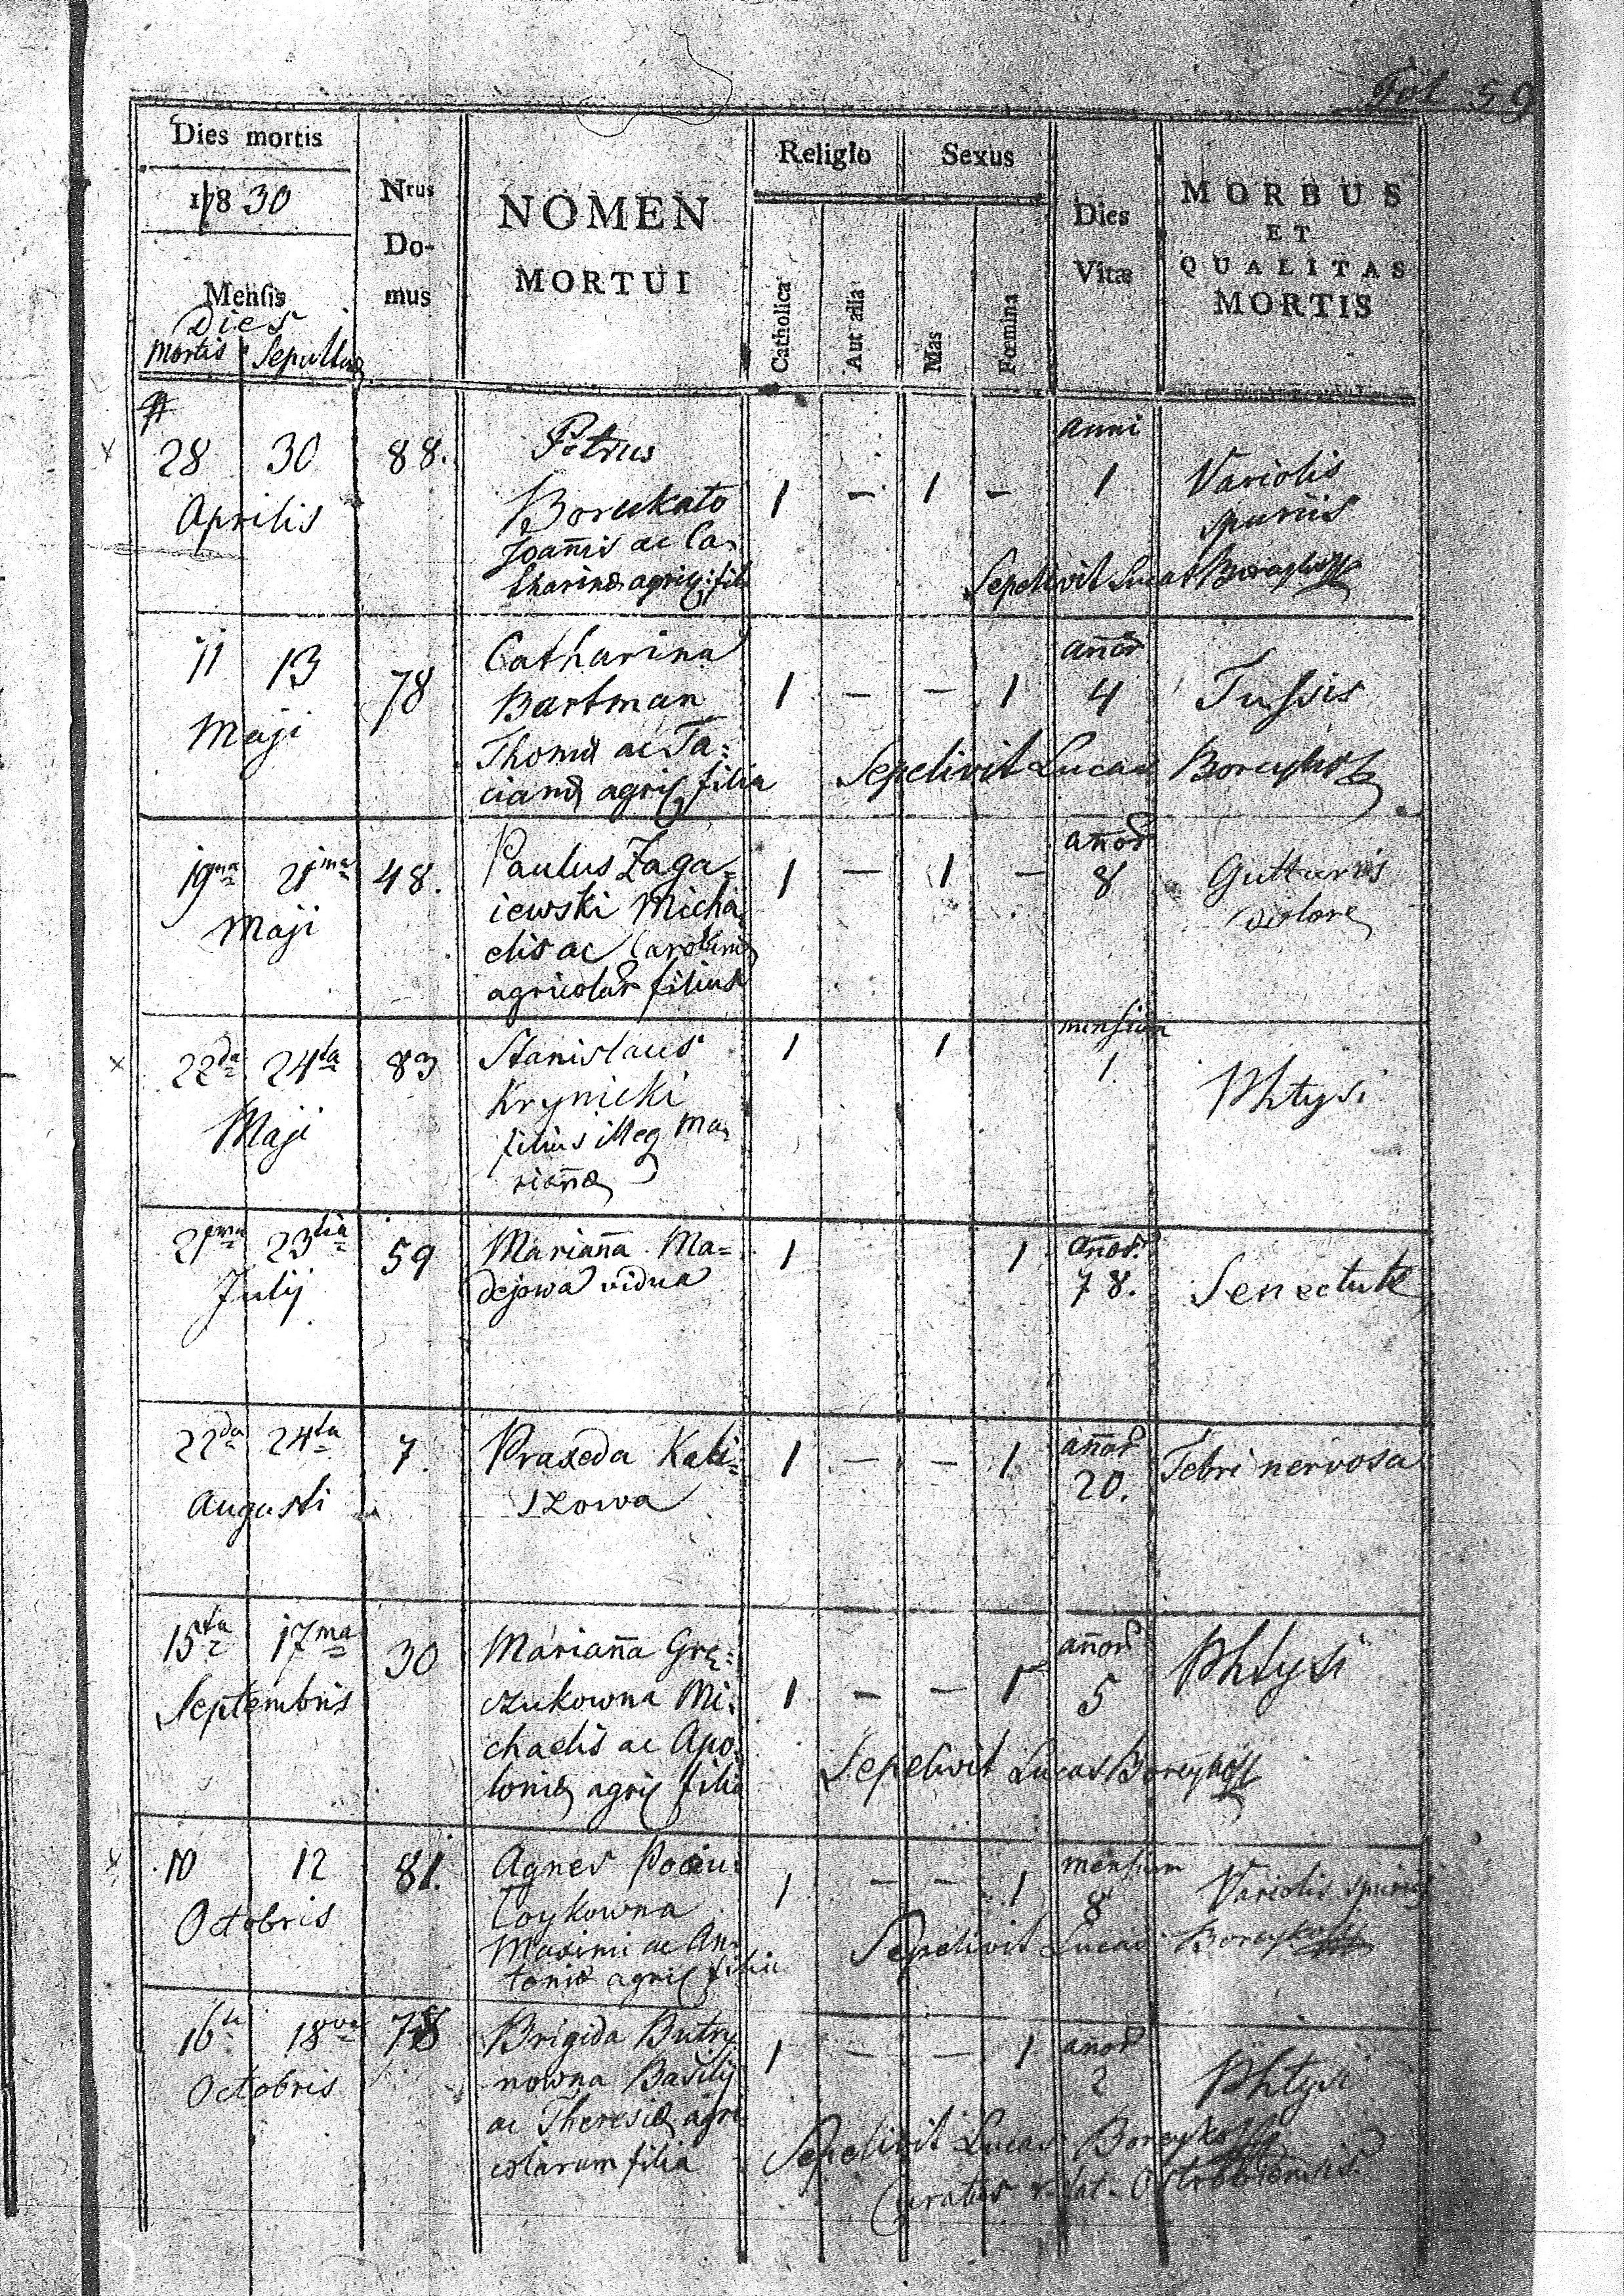 Fol 59
Dies mortis
1783 30
Mensis
Dies
Mortis Sepultura
Nrus
Do-
mus
NOMEN
MORTUI
Religio
Catholica
Aut alia
Sexus
Mas
Fœmina
Dies
Vitæ
MORBUS
ET
QUALITAS
MORTIS
28 30
Aprilis
88.
Petrus
Joannis ac Ca=
tharinæ agric: fili
1 - 1 -
Anni
1
Variolis
spuriis
Sepelivit Lucas
11 13
Maji
78
Catharina
Bartman
Thomæ ac Ta=
cianæ agric filia
1 - - 1
añor
4
Tussis
Sepelivit Lucas
19na 21ma
Maji
48.
Paulus Zaga=
iewski Micha
elis ac Carolinæ
agricolar filius
1 - 1 -
añor
8
Gutturis
dolore
22da 24ta
Maji
83
Stanislaus
Krynicki
filius illeg Ma=
riañæ
1 1
mensium
1.
Phtysi
21ma 23tia
Julij
59
Mariañna Ma=
dejowa vidua
1 1
añor.
78.
Senectute
22da 24ta
Augusti
7.
Praxeda Kali=
szowa
1 - - 1
añor
20.
Febri nervosa
15ta 17ma
Septembris
30
Mariañna Grę=
czukowna Mi=
chaelis ac Apo=
loniæ agric filia
1 - - 1
añor
5
Phtysi
Sepelivit Lucas
10 12
Octobris
81.
Agnes
Maximi ac An=
toniæ agric filia
1 - - 1
mensium
8
Variolis spuriis
Sepelivit Lucas
16ta 18va
Octobris
78
Brigida Butry
nowna Basilij
ac Theresiæ agri
colarum filia
1 - - 1
añor
2
Phtysi
Sepelivit Lucas
Curatus